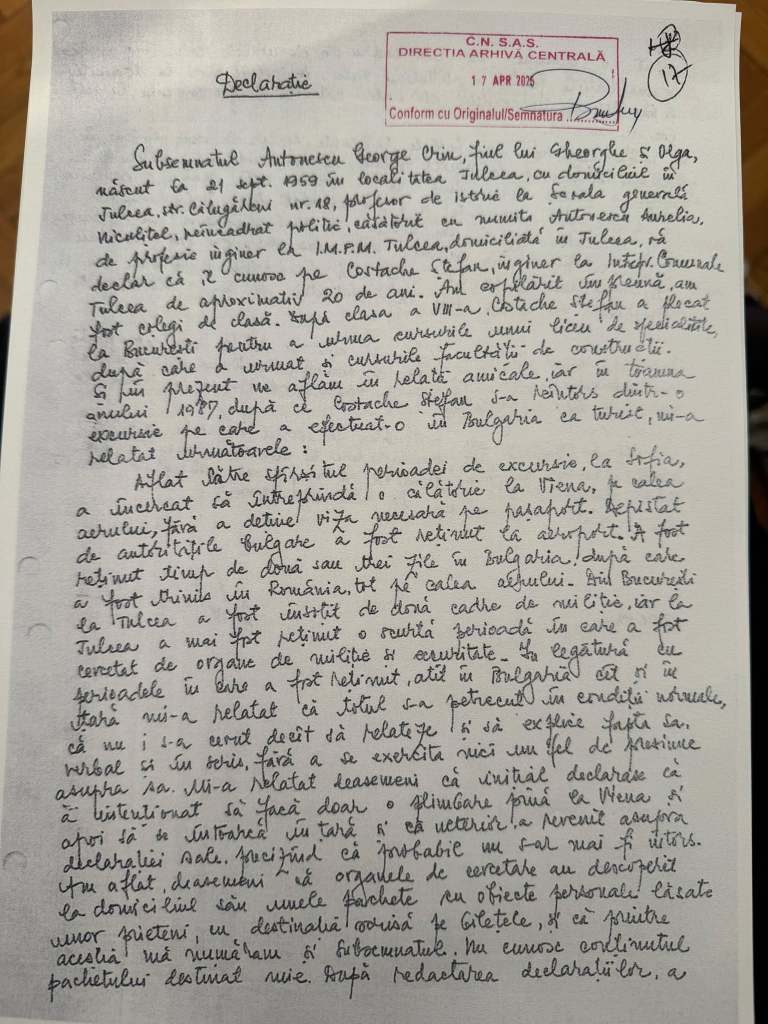 C.N.S.A.S.
DIRECȚIA ARHIVĂ CENTRALĂ
17 APR 2025
Conform cu Originalul/Semnatura
17
Declarație
Subsemnatul Antonescu George Crin, fiul lui Gheorghe și Olga,
născut la 21 sept. 1959 în localitatea Tulcea, cu domiciliul în
Tulcea, str. Călugăreni nr. 18, profesor de istorie la Școala generală
Niculițel, neîncadrat politic, căsătorit cu numita Antonescu Aurelia,
de profesie inginer la I.M.P.M. Tulcea, domiciliată în Tulcea, vă
declar că îl cunosc pe Costache Ștefan, inginer la Întepr. Comunale
Tulcea de aproximativ 20 de ani. Am copilărit împreună, am
fost colegi de clasă. După clasa a VIII-a, Costache Ștefan a plecat
la București pentru a urma cursurile unui liceu de specialitate,
după care a urmat și cursurile facultății de construcții.
Și în prezent ne aflăm în relații amicale, iar în toamna
anului 1987, după ce Costache Ștefan s-a reîntors dintr-o
excursie pe care a efectuat-o în Bulgaria ca turist, mi-a
relatat următoarele:
Aflat către sfîrșitul perioadei de excursie, la Sofia,
a încercat să întreprindă o călătorie la Viena, pe calea
aerului, fără a deține viza necesară pe pașaport. Depistat
de autoritățile bulgare a fost reținut la aeroport. A fost
reținut timp de două sau trei zile în Bulgaria, după care
a fost trimis în România, tot pe calea aerului. Din București
la Tulcea a fost însoțit de două cadre de miliție, iar la
Tulcea a mai fost reținut o scurtă perioadă în care a fost
cercetat de organe de miliție și securitate. În legătură cu
perioadele în care a fost reținut, atît în Bulgaria cît și în
țară mi-a relatat că totul s-a petrecut în condiții normale,
că nu i s-a cerut decît să relateze și să explice fapta sa,
verbal și în scris, fără a se exercita nici un fel de presiune
asupra sa. Mi-a relatat deasemeni că inițial declarase că
a intenționat să facă doar o plimbare pînă la Viena și
apoi să se întoarcă în țară și că ulterior a revenit asupra
declarației sale, precizînd că probabil nu s-ar mai fi întors.
Am aflat, deasemeni că organele de cercetare au descoperit
la domiciliul său unele pachete cu obiecte personale lăsate
unor prieteni, cu destinația scrisă pe bilețele, și că printre
aceștia mă număram și subsemnatul. Nu cunosc conținutul
pachetului destinat mie. După redactarea declarațiilor, a